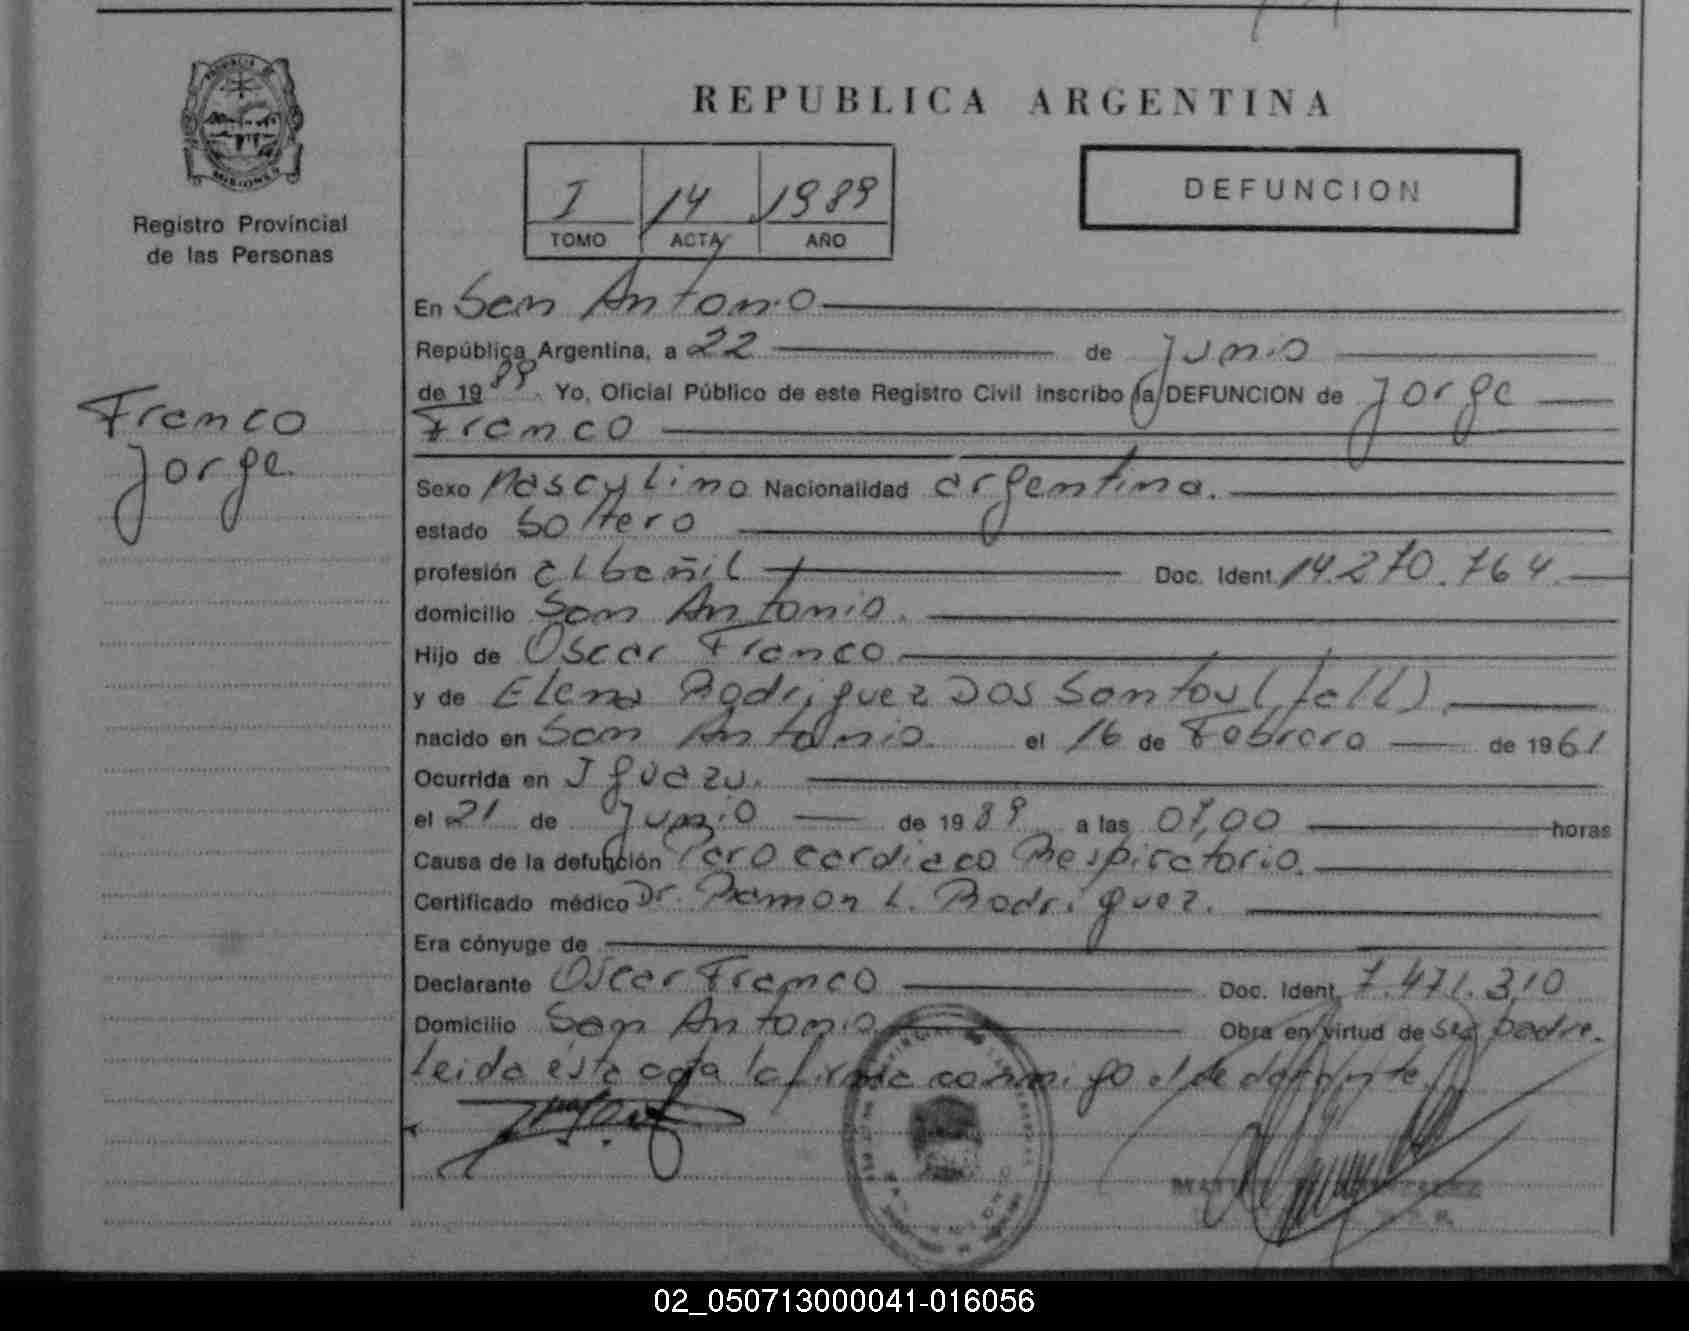 PROVINCIA DE
MISIONES
Registro Provincial
de las Personas
Franco
Jorge
REPUBLICA ARGENTINA
I 14 1989
TOMO ACTA AÑO
DEFUNCION
En San Antonio
República Argentina, a 22 de Junio
de 1989 Yo, Oficial Público de este Registro Civil inscribo la DEFUNCION de Jorge
Franco
Sexo Masculino Nacionalidad argentina.
estado Soltero
profesión albañil Doc. Ident. 14.270.764
domicilio San Antonio.
Hijo de Oscar Franco
y de Elena Rodriguez Dos Santos (fall)
nacido en San Antonio el 16 de Febrero de 1961
Ocurrida en Iguazu.
el 21 de Junio de 1989 a las 07,00 horas
Causa de la defunción Paro cardiaco Respiratorio.
Certificado médico Dr. Ramon L. Rodriguez.
Era cónyuge de
Declarante Oscar Franco Doc. Ident. 7.471.310
Domicilio San Antonio Obra en virtud de ser padre.
leida esta acta la firma conmigo el declarante
02_050713000041-016056